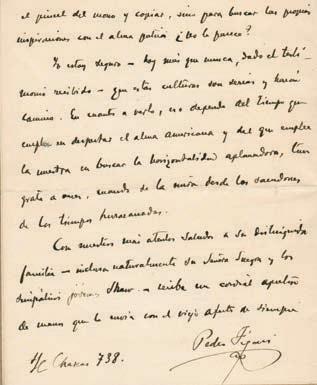 el pincel del mono y copiar, sino para buscar las propias
inspiraciones con el alma patria ¿No le parece?
Yo estoy seguro – hoy más que nunca, dado el testi-
monio recibido – que estas culturas son serias y harán
camino. En cuanto a verlo, eso depende del tiempo que
emplee en despertar el alma americana y del que emplee
la nuestra en buscar la horizontalidad aplanadora, tan
grata a unos, cuando se la mira desde los
de los tiempos huracanados.
Con nuestros más atentos saludos a su distinguida
familia – inclusa naturalmente su Señora Suegra y los
simpáticos jóvenes Shaw – reciba un cordial apretón
de manos que le envía con el viejo afecto de siempre
Pedro Figari
S/C Charcas 738.